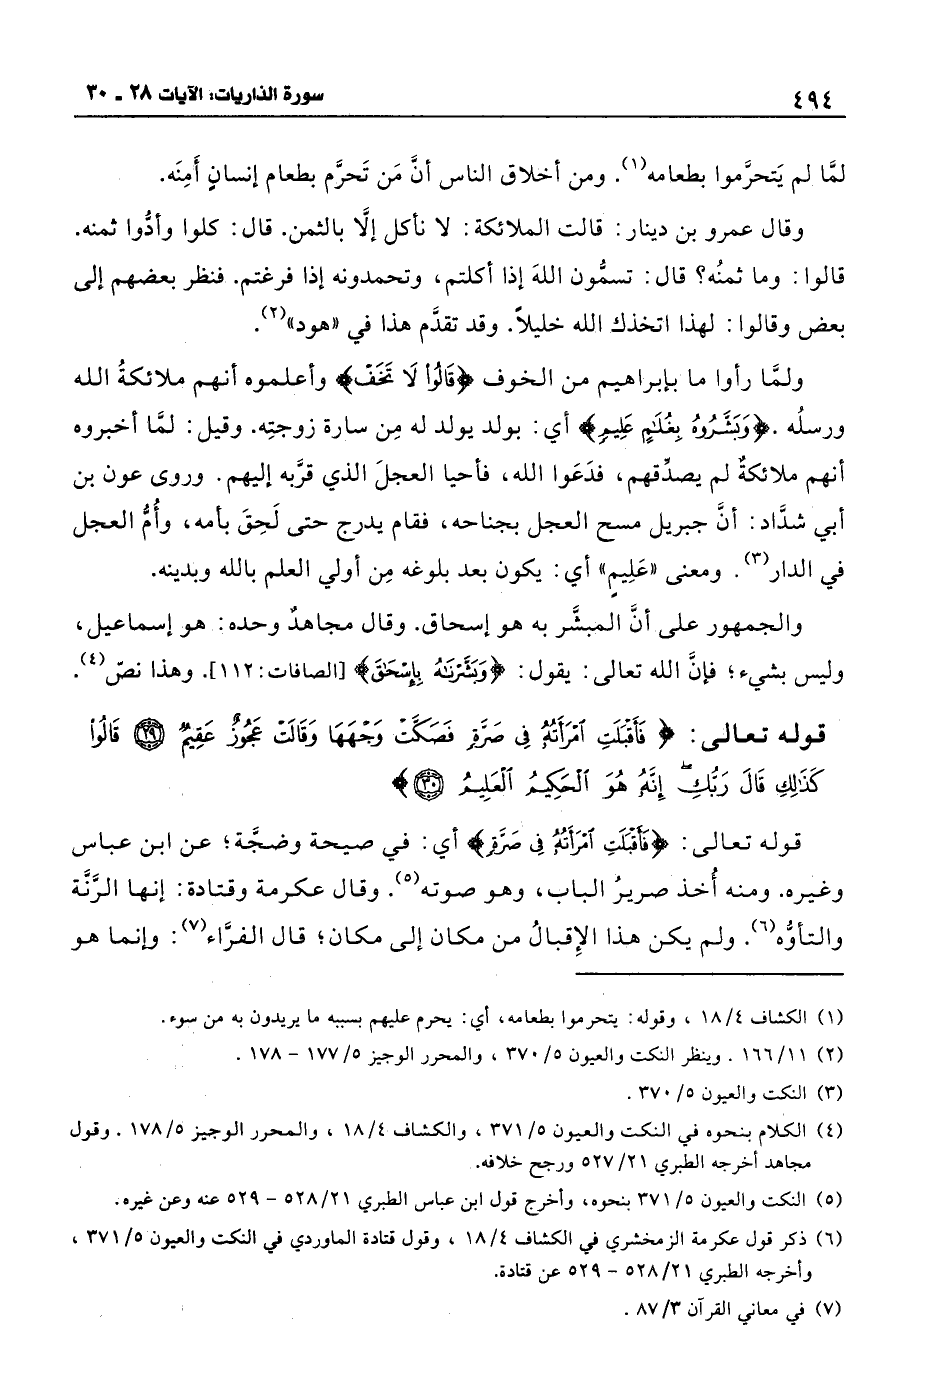 ٤٩٤ سورة الذاريات: الآيات ٢٨ ـ ٣٠
لمَّا لم يَتحرَّموا بطعامه(١). ومن أخلاق الناس أنَّ مَن تَحرَّم بطعام إنسانٍ أَمِنَه.
وقال عمرو بن دينار: قالت الملائكة: لا نأكل إلَّا بالثمن. قال: كلوا وأدُّوا ثمنه.
قالوا: وما ثمنُه؟ قال: تسمُّون اللهَ إذا أكلتم، وتحمدونه إذا فرغتم. فنظر بعضهم إلى
بعض وقالوا: لهذا اتخذك الله خليلاً. وقد تقدَّم هذا في «هود»(٢).
ولمَّا رأوا ما بإبراهيم من الخوف ﴿قَالُواْ لَا تَخَفْ﴾ وأعلموه أنهم ملائكةُ الله
ورسلُه. ﴿وَبَشَّرُوهُ بِغُلَٰمٍ عَلِيمٍ﴾ أي: بولد يولد له مِن سارة زوجتِه. وقيل: لمَّا أخبروه
أنهم ملائكةٌ لم يصدِّقهم، فدَعَوا الله، فأحيا العجلَ الذي قرَّبه إليهم. وروى عون بن
أبي شدَّاد: أنَّ جبريل مسح العجل بجناحه، فقام يدرج حتى لَحِقَ بأمه، وأُمُّ العجل
في الدار(٣). ومعنى «عَلِيمٍ» أي: يكون بعد بلوغه مِن أولي العلم بالله وبدينه.
والجمهور على أنَّ المبشَّر به هو إسحاق. وقال مجاهدٌ وحده: هو إسماعيل،
وليس بشيء؛ فإنَّ الله تعالى: يقول: ﴿وَبَشَّرْنَٰهُ بِإِسْحَٰقَ﴾ [الصافات: ١١٢]. وهذا نصّ(٤).
قوله تعالى: ﴿ فَأَقْبَلَتِ ٱمْرَأَتُهُۥ فِى صَرَّةٍ فَصَكَّتْ وَجْهَهَا وَقَالَتْ عَجُوزٌ عَقِيمٌ ۝٢٩ قَالُواْ
كَذَٰلِكِ قَالَ رَبُّكِ ۖ إِنَّهُۥ هُوَ ٱلْحَكِيمُ ٱلْعَلِيمُ ۝٣٠ ﴾
قوله تعالى: ﴿فَأَقْبَلَتِ ٱمْرَأَتُهُۥ فِى صَرَّةٍ﴾ أي: في صيحة وضجَّة؛ عن ابن عباس
وغيره. ومنه أُخذ صريرُ الباب، وهو صوته(٥). وقال عكرمة وقتادة: إنها الرَّنَّة
والتأوُّه(٦). ولم يكن هذا الإقبالُ من مكان إلى مكان؛ قال الفرَّاء(٧): وإنما هو
(١) الكشاف ١٨/٤ ، وقوله: يتحرموا بطعامه، أي: يحرم عليهم بسببه ما يريدون به من سوء.
(٢) ١٦٦/١١ . وينظر النكت والعيون ٣٧٠/٥ ، والمحرر الوجيز ١٧٧/٥ - ١٧٨ .
(٣) النكت والعيون ٣٧٠/٥ .
(٤) الكلام بنحوه في النكت والعيون ٣٧١/٥ ، والكشاف ١٨/٤ ، والمحرر الوجيز ١٧٨/٥ . وقول
مجاهد أخرجه الطبري ٥٢٧/٢١ ورجح خلافه.
(٥) النكت والعيون ٣٧١/٥ بنحوه، وأخرج قول ابن عباس الطبري ٥٢٨/٢١ - ٥٢٩ عنه وعن غيره.
(٦) ذكر قول عكرمة الزمخشري في الكشاف ١٨/٤ ، وقول قتادة الماوردي في النكت والعيون ٣٧١/٥ ،
وأخرجه الطبري ٥٢٨/٢١ - ٥٢٩ عن قتادة.
(٧) في معاني القرآن ٨٧/٣ .